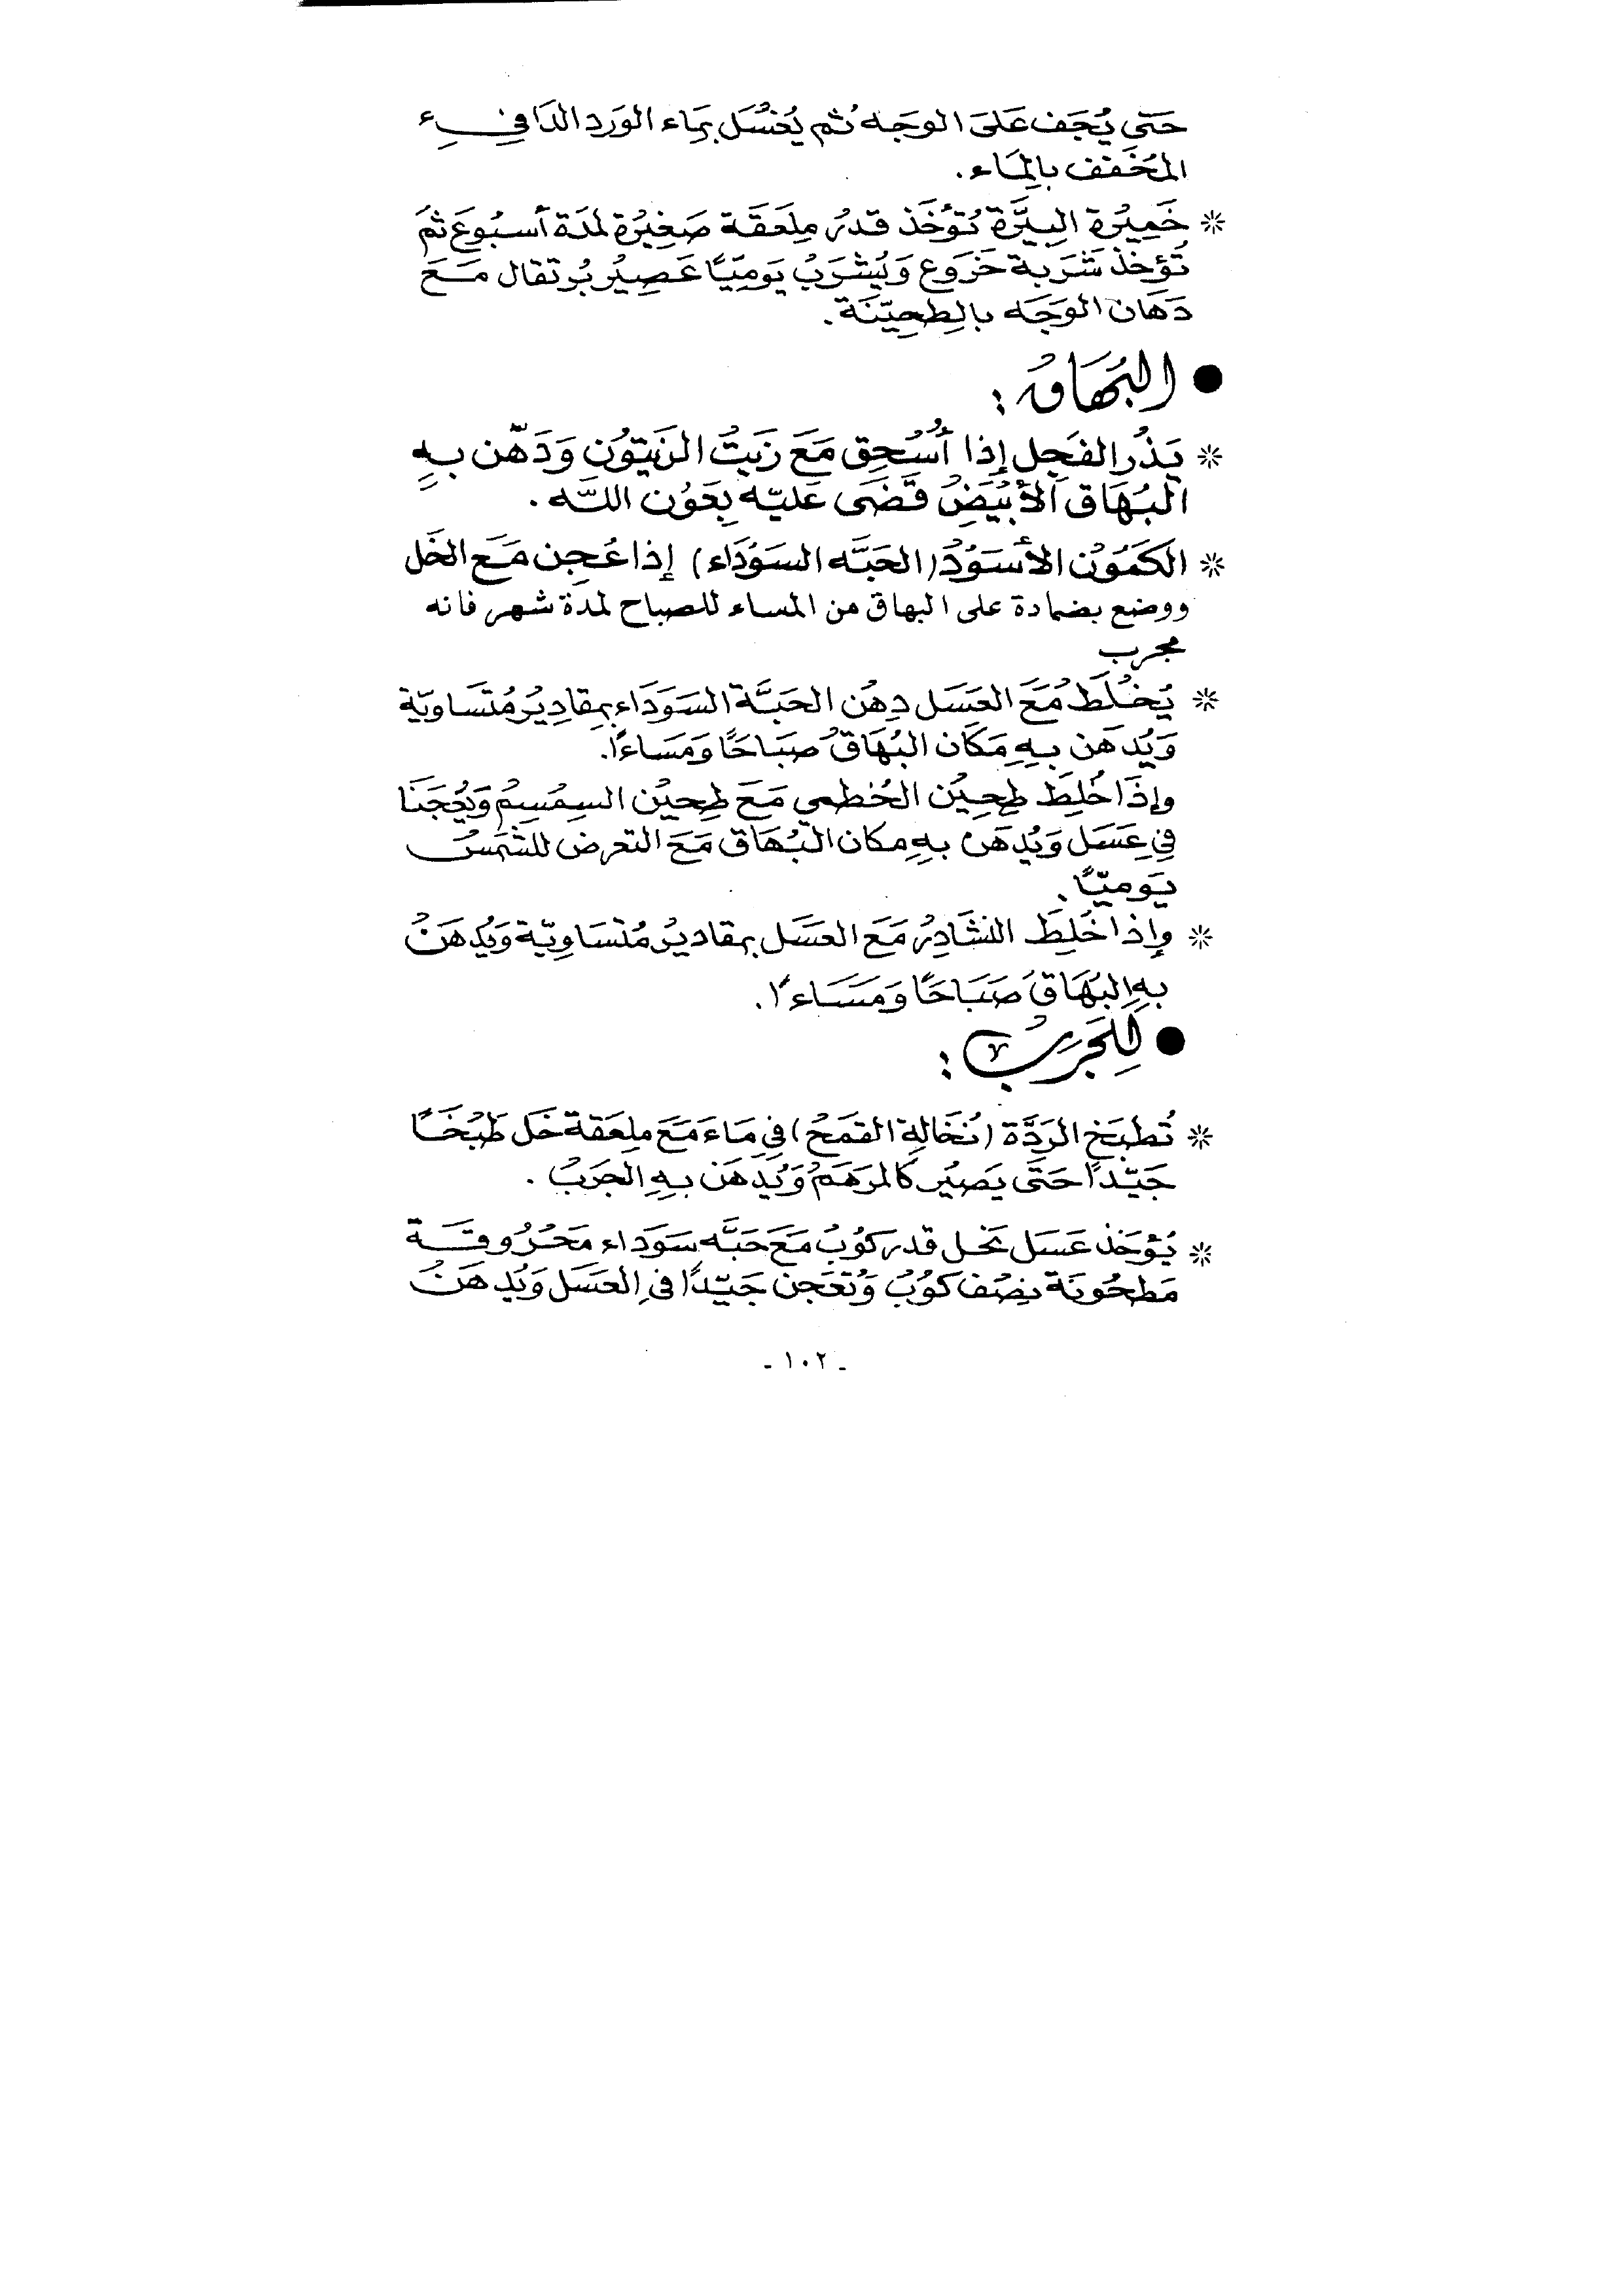 حَتى يُجَف عَلىَ الوجَه ثم يُغسُل بمَاء الوَرد الدَافِيء
المُخَفف بالمَاء.
* خَمِيرُة البِيَّرة تُؤخَذ قدرُ ملِعَقَة صَغِيُرة لمَدَة أسبُوعَ ثمُ
تُؤخذ شَرَبة خَروَع وَيُشرَبُ يَومِيًا عَصِيُر بُرتقال مَعَ
دَهَان الوَجَه بالِطحِيّنَة.
● البُهَاقُ :
* بَذُر الفَجِل إذا أُسُحِق مَعَ زَيتُ الزَيتوُن وَدَهّن بهِ
البُهَاق الأبُيَضِ قَضَى عَليّه بِعَوُن اللَّه.
* الكَمَوُن الأسَوُدُ (الحَبَّه السَوُدَاء) إذا عُجِن مَعَ الخَل
ووضع بضمادة على البهاق من المساء للصباح لمدة شهر فانه
مجرب
* يَخُلَط مُعَ العَسَل دِهُن الحَبَّة السَوَدَاء بمِقادِيُر مُتَساويّة
وَيُدهَن بهِ مَكَان البُهَاقُ صَبَاحًا وَمَسَاءًا.
وإذَا خُلِطَ طحِيُن الخُطمي مَعَ طِحيُن السِمُسِمُ وَيُعجَنَا
في عِسَل وَيُدهَن بهِ مكان البُهَاق مَعَ التعرض للشَمسُ
يَوميًّا.
* وإذا خُلِطَ النشَادِرُ مَعَ العسَل بمقاديرُ مُتسَاوِيّة وَيُدهَنُ
بهِ البُهَاقُ صَبَاحًا وَمَسَاءًا.
● لِلجَرَبُ :
* تُطبَخ الرَدَّة (نُخَالةِ القمَحُ) في مَاءَ مَعَ ملِعَقة خَل طَبُخًا
جَيّدًا حَتَى يَصيُر كَالمرَهَمُ وَيُدهَن بهِ الجَرَبُ.
* يُؤخَذ عَسَل نحَل قدر كوُبُ مَعَ حَبَّه سَوَداء مَحَرُوقَة
مَطحُونَة نِصُف كوُبُ وَتُعَجن جَيّدًا في العَسَل وَيُدهَنُ
- ١٠٢ -